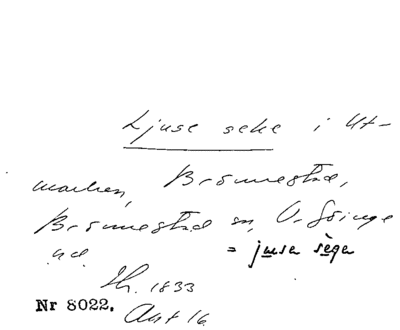 Ljuse seke i Ut-
marken, Brömestad,
Brömestad sn, V. Göinge
hd = jusa sèga
Th. 1833
Nr 8022. Akt 16